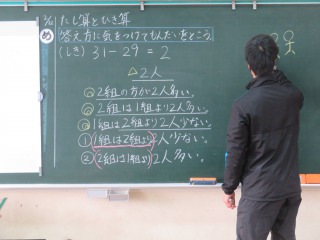 たし算とひき算
め 答え方に気をつけてもんだいをとこう。
(しき) 31-29=2
△2人
2組の方が2人多い。
2組は1組より2人多い。
1組は2組より2人少ない。
① 1組は2組より2人少ない。
② 2組は1組より2人多い。